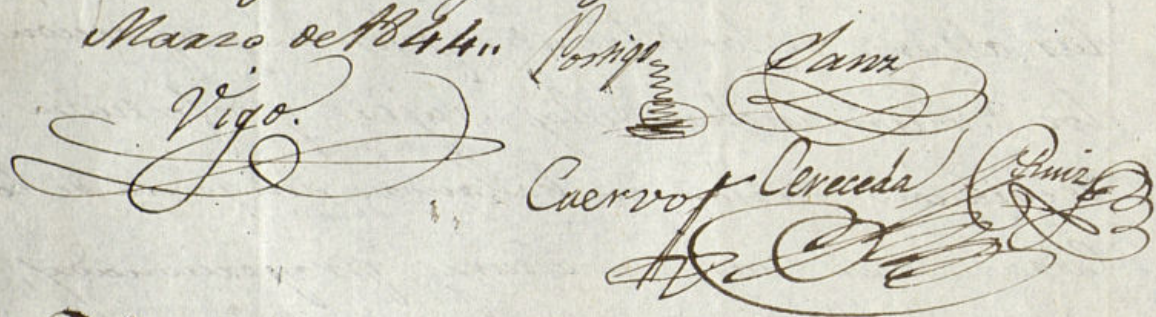 Marzo de 1844..
Vigo.
Postigo Sanz
Cuervo Cereceda Ruiz